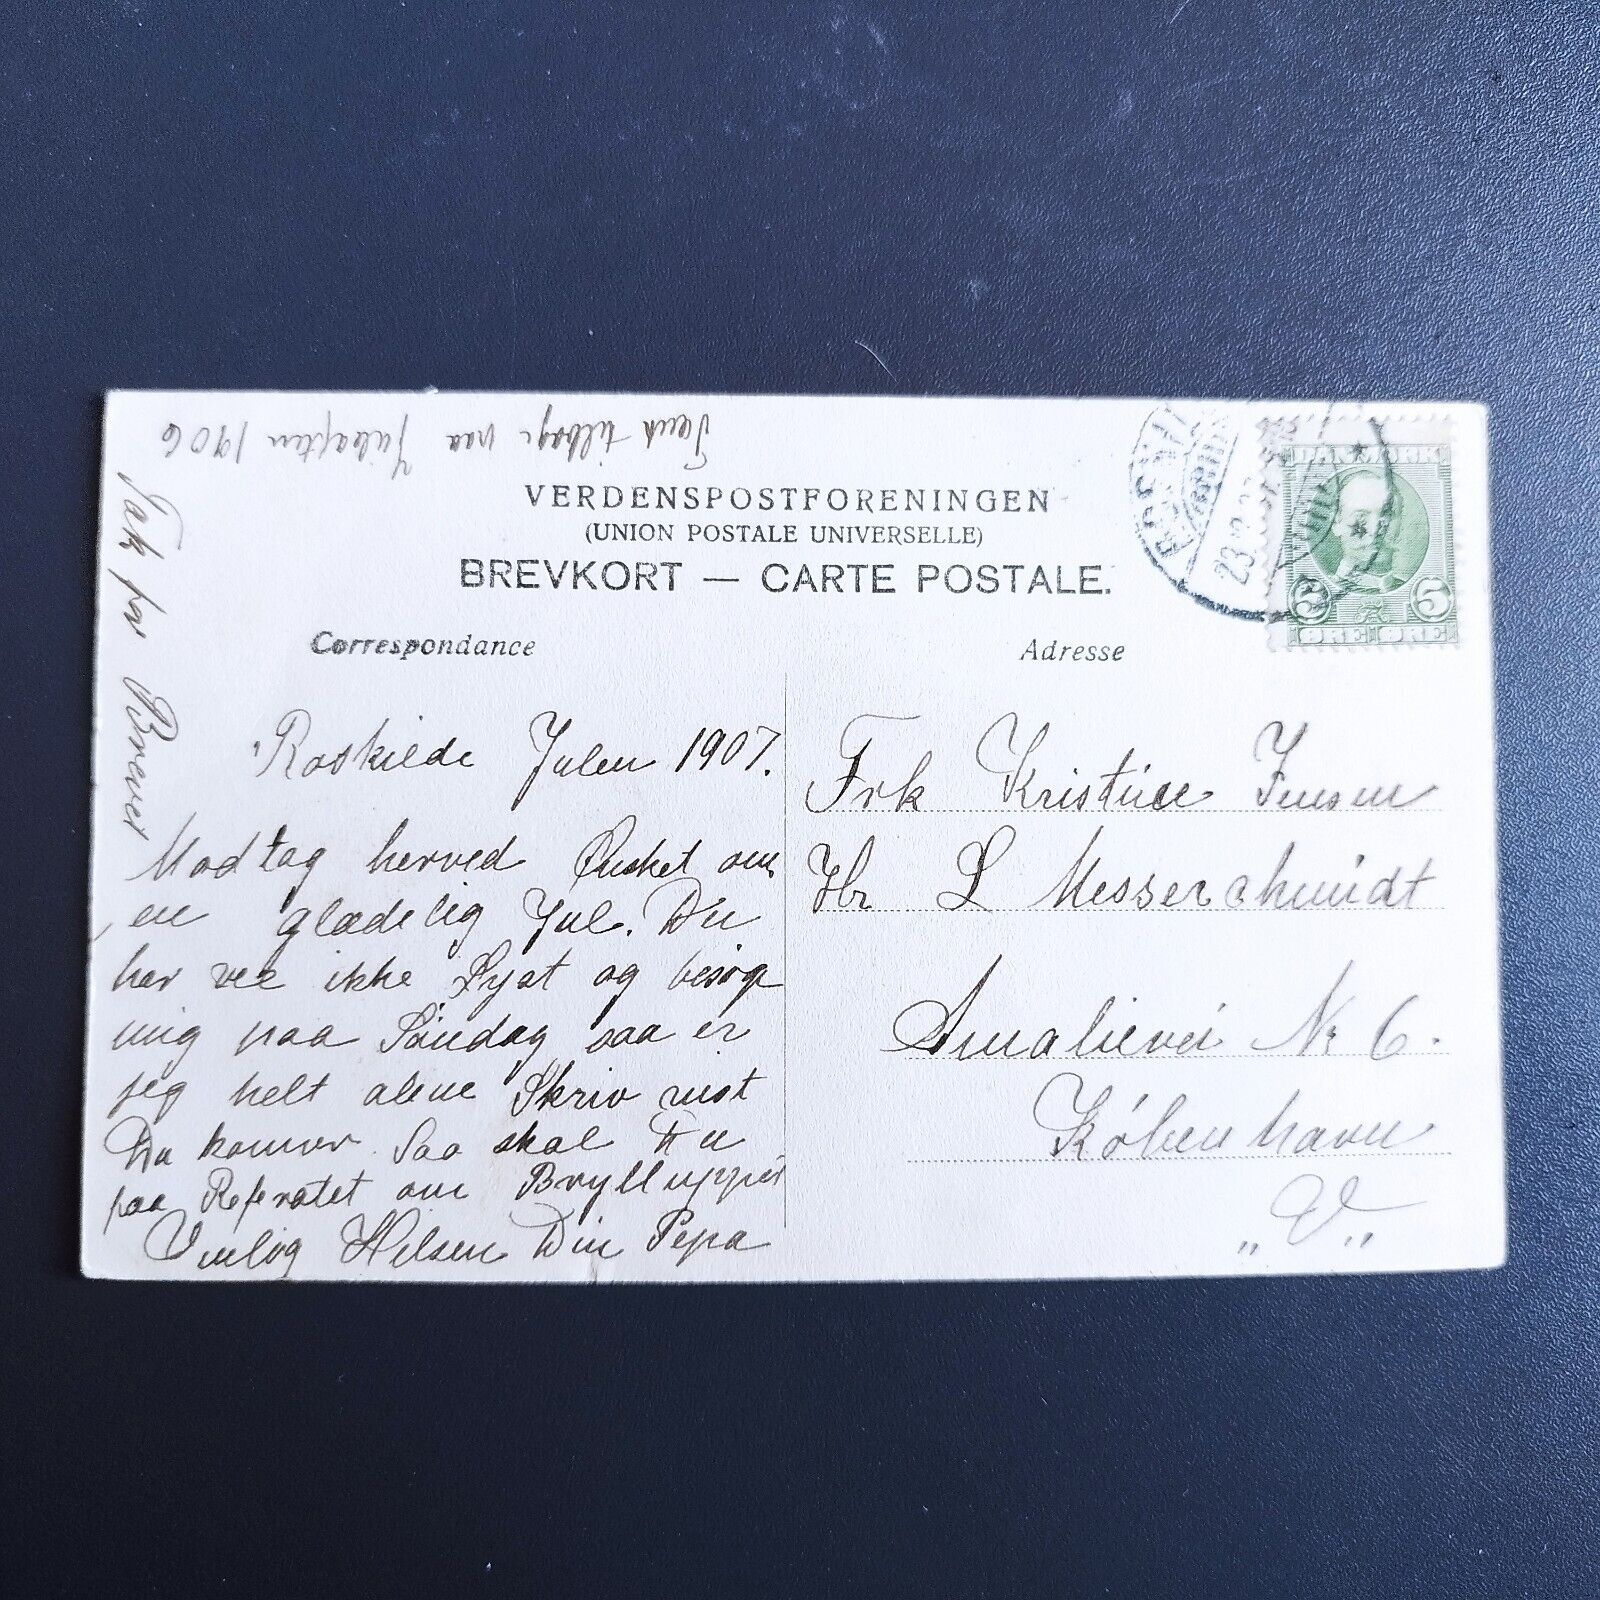 Tænk tilbage paa Juleaften 1906
Tak for Brevet
VERDENSPOSTFORENINGEN
(UNION POSTALE UNIVERSELLE)
BREVKORT — CARTE POSTALE.
Correspondance
Roskilde Julen 1907.
Modtag herved Ønsket om
en glædelig Jul. Du
har vel ikke Lyst og besøge
mig paa Søndag saa er
jeg helt alene Skriv vist
Du kommer. Saa skal Du
faa Referatet om Brylluppet
Venlig Hilsen Din Pepa
Adresse
Frk Kristine Jensen
Hr L Messerschmidt
Amalievei Nr 6.
København
"V"
23.12
DANMARK
5 5
ØRE ØRE